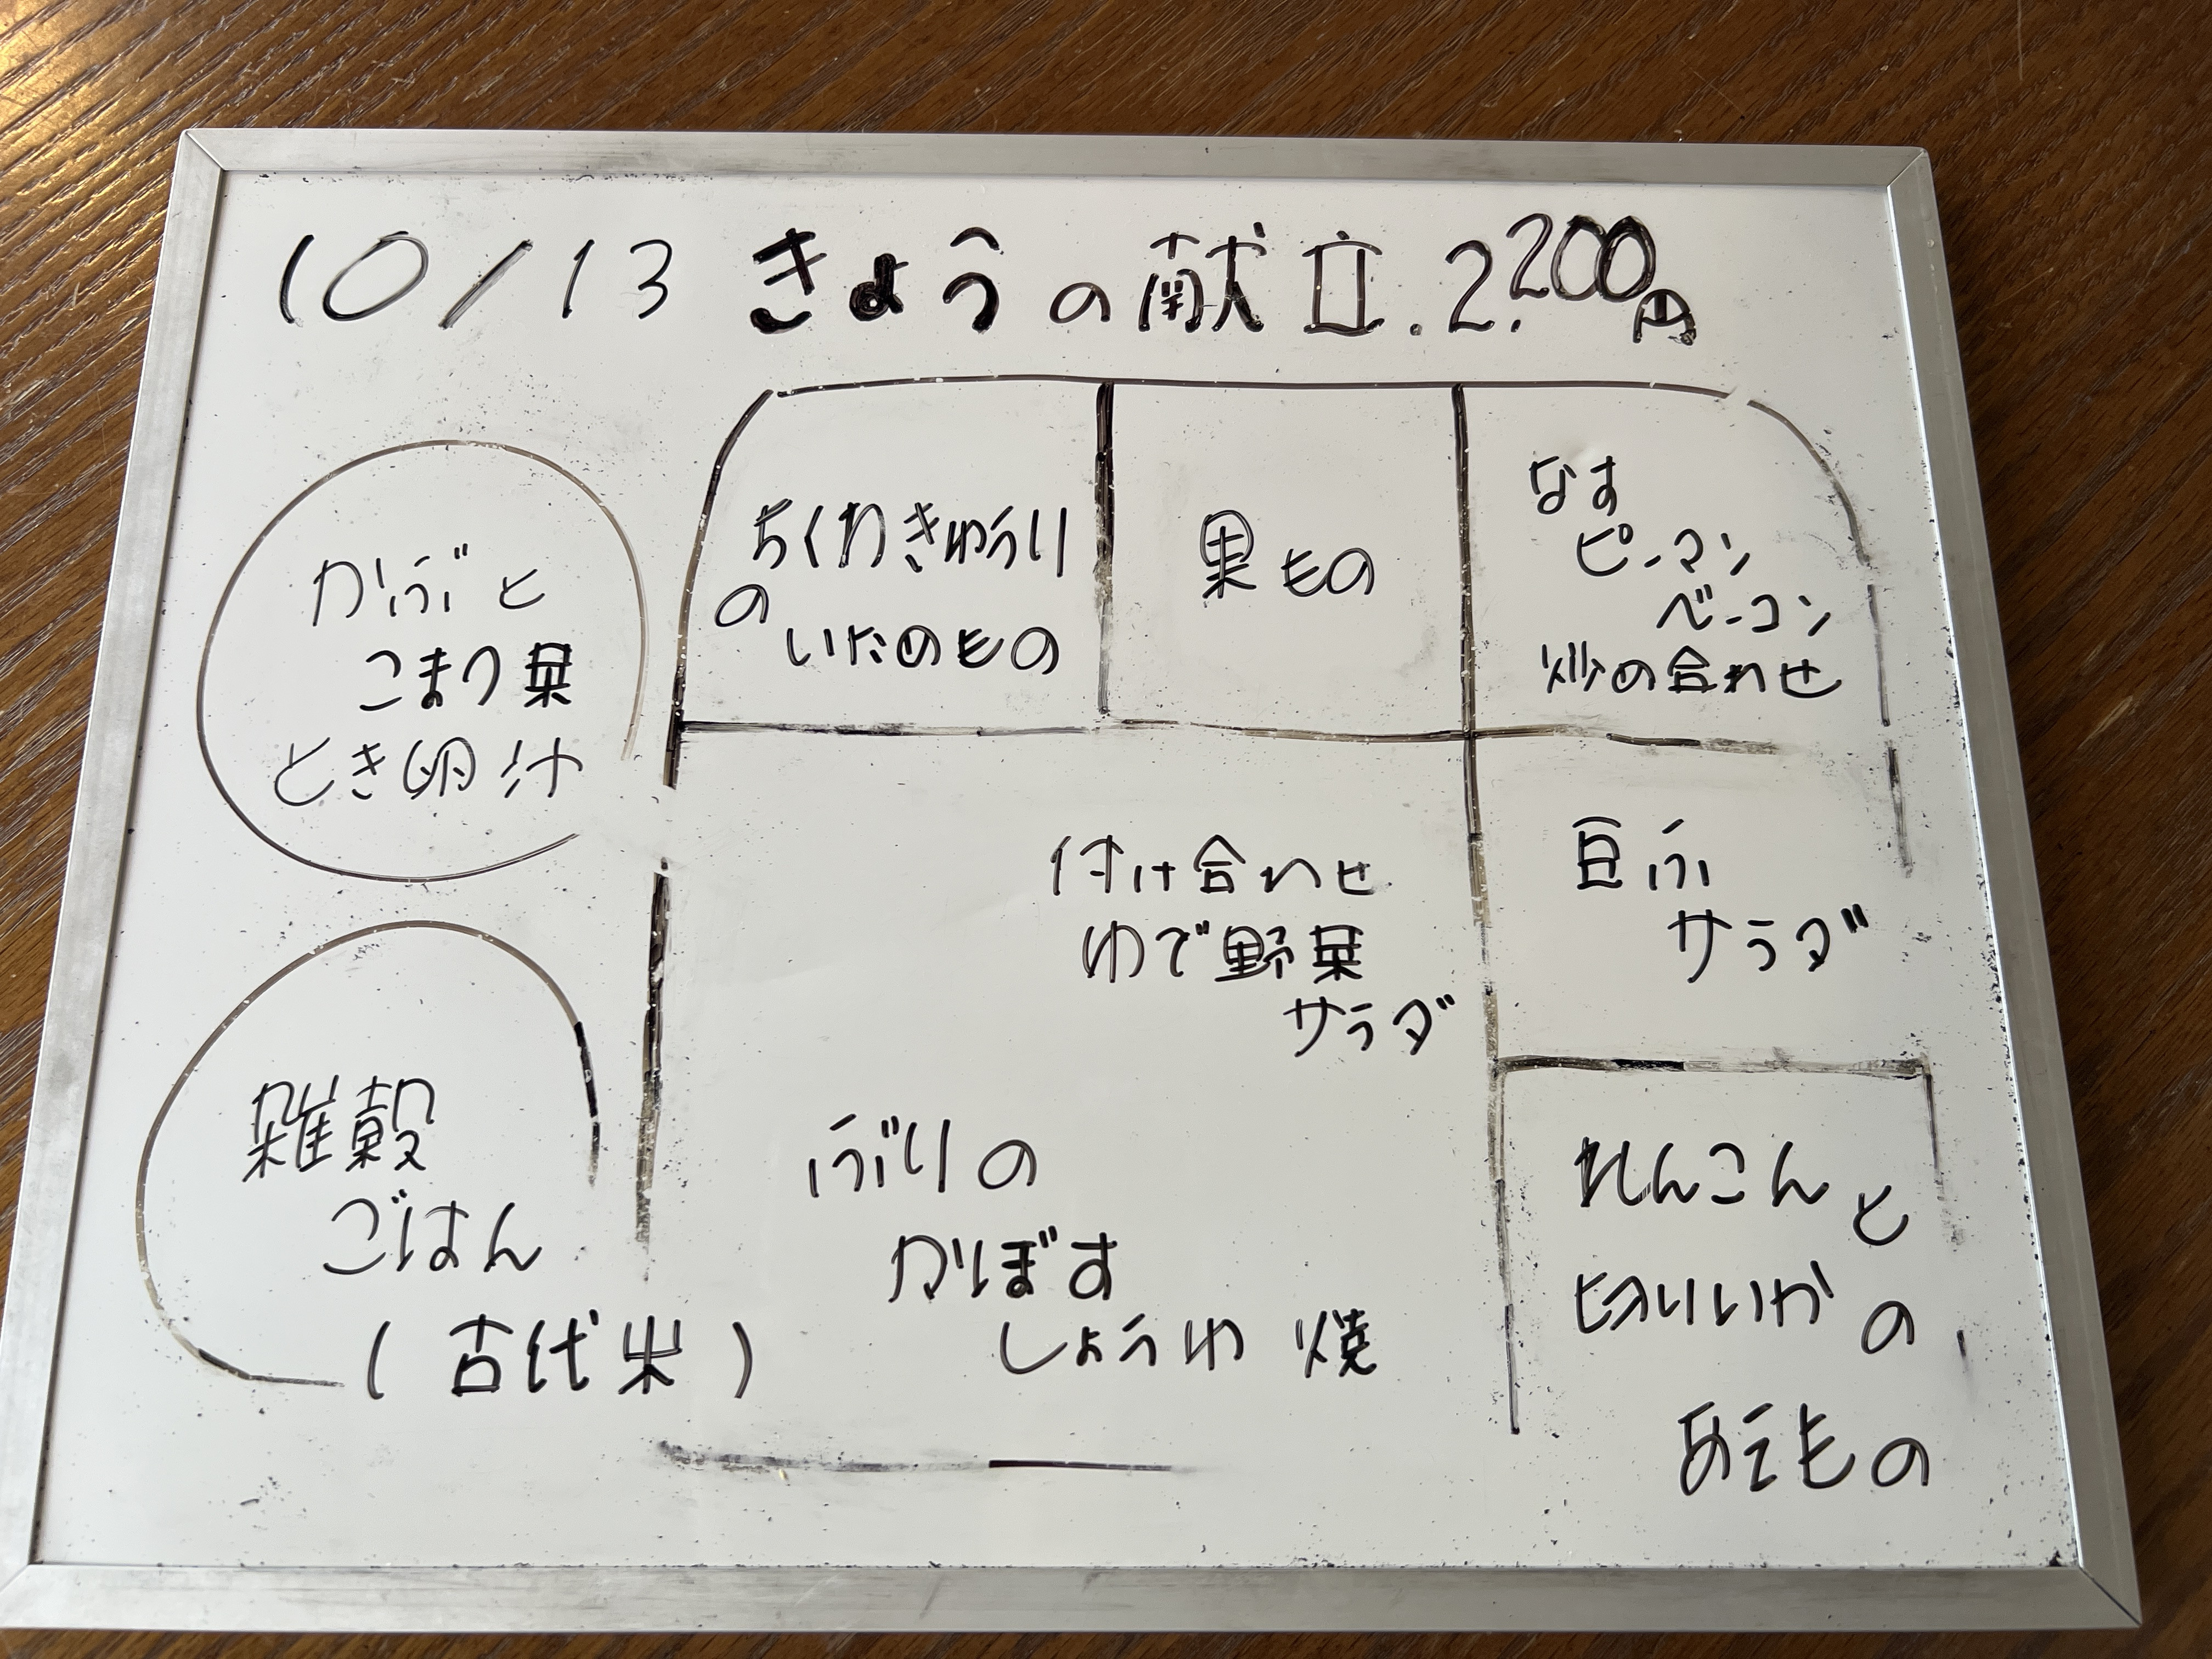 10/13 きょうの献立. 2.200円
かぶと
こまつ菜
とき卵汁
雑穀
ごはん
(古代米)
ちくわきゅうり
の
いためもの
果もの
なす
ピーマン
ベーコン
炒め合わせ
付け合わせ
ゆで野菜
サラダ
ぶりの
かぼす
しょうゆ焼
豆ふ
サラダ
れんこんと
切りいかの
あえもの